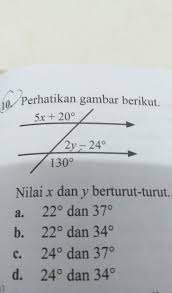 10. Perhatikan gambar berikut.
5x + 20°
2y – 24°
130°
Nilai x dan y berturut-turut..
a. 22° dan 37°
b. 22° dan 34°
c. 24° dan 37°
d. 24° dan 34°